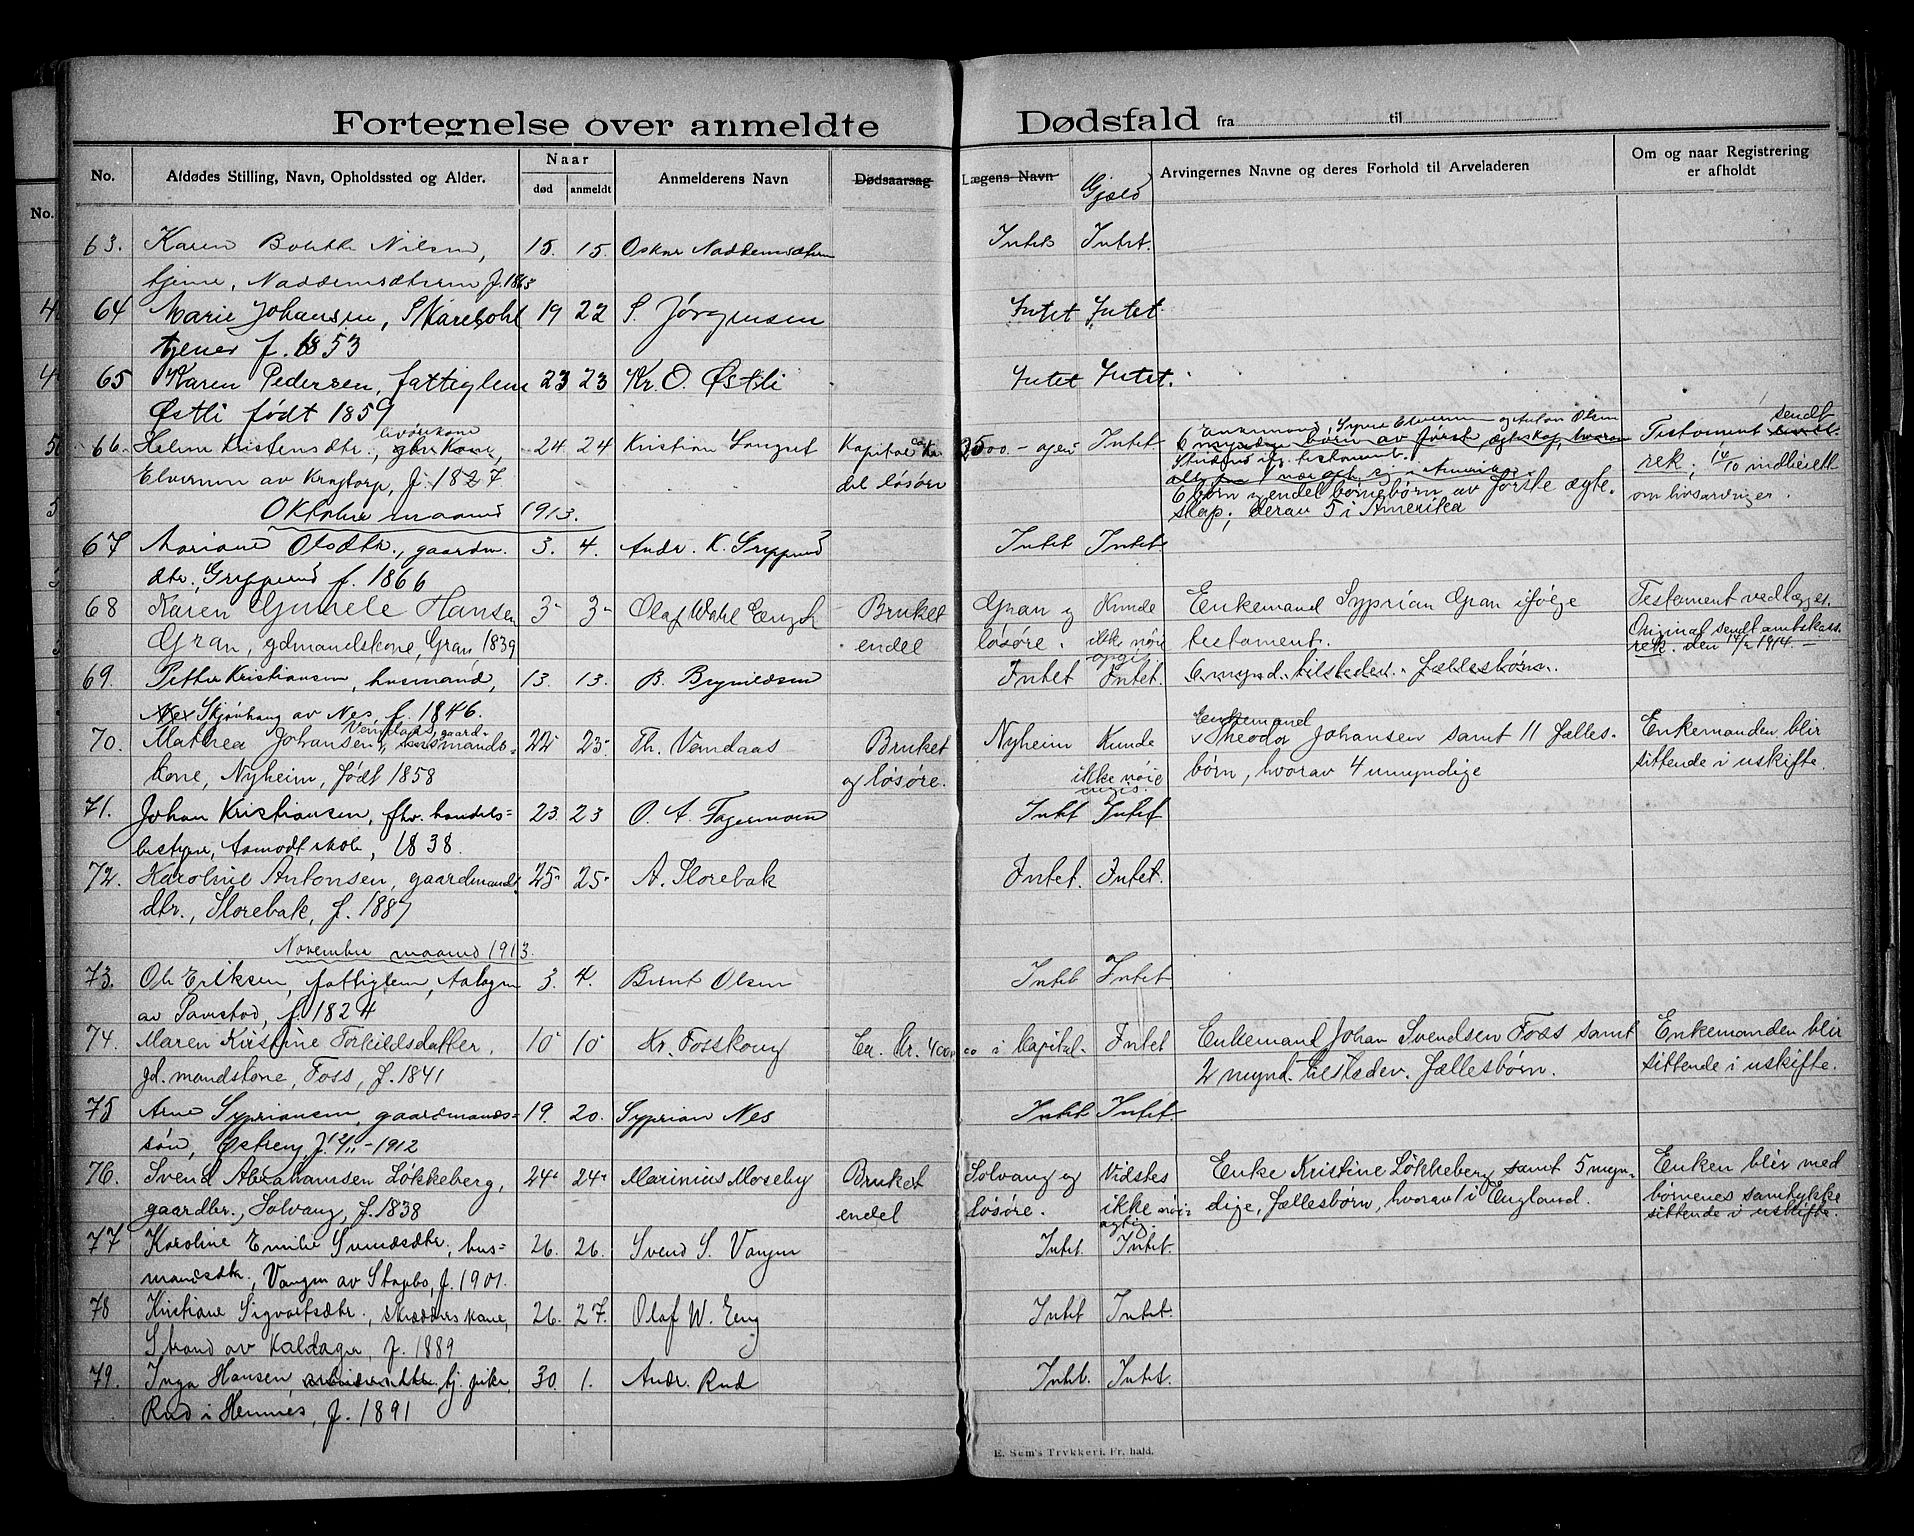 Fortegnelse over anmeldte Dødsfald fra til
No. Afdødes Stilling, Navn, Opholdssted og Alder. Naar Anmelderens Navn Dødsaarsag Lægens Navn Gjæld Arvingernes Navne og deres Forhold til Arveladeren Om og naar Registrering
død anmeldt er afholdt
No.
63. Karen Nilsen, 15. 15. Oskar Intet Intet.
f. 1863
64 Marie Johansen, 19 22 S. Jørgensen Intet Intet.
tjener f. 1853
65 Karen Pedersen, fattiglem 23 23 Kr. O. Østli Intet Intet.
Østli født 1859
66. Helene Kristensdtr., kone, 24. 24 Kristian Kapital 2500.- og en Intet 6 myndige børn av først egteskap, hvorav Testament sendt
Elverum av Krogtorp, f. 1827 del løsøre rek; 14/10 indberett
6 børn og endel børnebørn av første egte- om livsarvinger.
skap; derav 5 i Amerika
Oktober maaned 1913.
67 Mariane Olsdtr., gaardm. 3. 4. Andr. K. Grypperud Intet Intet
dtr. Grypperud f. 1866
68 Karen Gunnele Hansen 3 3 Olaf Wahl Eng Bruket Gran og Kunde Enkemand Syprian Gran ifølge Testament vedlægges.
Gran, gdmandskone, Gran 1839 endel løsøre. ikke nøie testament. Original sendt amtskass.
opgis rek. den 1914.
69. Petter Kristiansen, husmand, 13. 13. B. Brynildsen Intet Intet. 6 mynd. tilstedev. fællesbørn.
Skjønhaug av Nes, f. 1846.
70. Mathea Johansen, gaard- 22 23 Th. Vendaas Bruket Nyheim Kunde Enkemand Theodor Johansen samt 11 fælles- Enkemanden blir
kone, Nyheim, født 1858 og løsøre. ikke nøie børn, hvorav 4 umyndige sittende i uskifte.
71. Johan Kristiansen, fhv. handels- 23. 23 O. A. Fagermoen Intet Intet
bestyrer, Aamodt skole, 1838.
72. Karoline Antonsen, gaardmands 25 25 A. Slorebak Intet. Intet.
dtr., Slorebak, f. 1887
November maaned 1913.
73. Ole Eriksen, fattiglem, 3. 4. Bernt Olsen Intet Intet
av f. 1824
74. Maren Kirstine Torkildsdatter, 10 10 Kr. Fosskoug Ca. Kr. 400,00 i kapital. Intet Enkemand Johan Svendsen Foss samt Enkemanden blir
gd. mandskone, Foss, f. 1841 2 mynd. tilstedev. fællesbørn. sittende i uskifte.
75 Arne Syprianssen, gaardmands- 19. 20. Syprian Nes Intet Intet
søn, Østreng, f. 12/11-1912
76. Svend Abrahamsen Løkkeberg, 24 24 Marinius Moseby Bruket Solvang og Vidstes Enke Kristine Løkkeberg samt 5 myn- Enken blir med
gaardbr., Solvang, f. 1838 endel løsøre. ikke nøi- dige, fællesbørn, hvorav 1 i England. børnenes samtykke
agtig. sittende i uskifte.
77 Karoline Emilie Svendsdtr., hus- 26. 26. Svend S. Vangen Intet. Intet.
mandsdtr., Vangen av Stapbo, f. 1901.
78 Kristiane Sigvartsdtr., skrædders kone, 26. 27. Olaf W. Eng Intet Intet.
Strand av Kaldager, f. 1889
79. Inga Hansen, tj. pike, 30. 1. Andr. Rud Intet. Intet.
Rud i Hemnes, f. 1891
E. Sem's Trykkeri, Fr. hald.